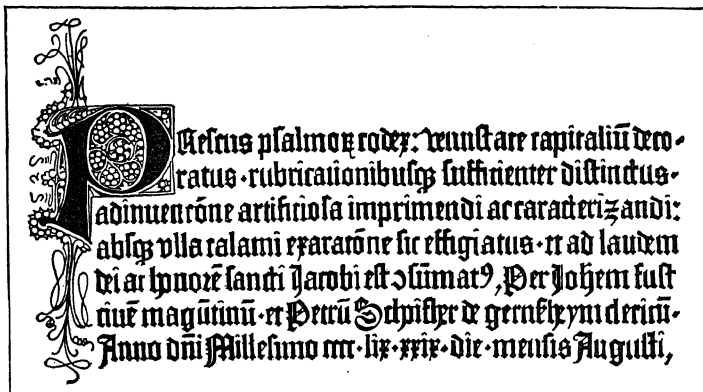 PResens psalmoꝝ codex: venustate capitaliū deco-
ratus. rubricationibusqꝫ sufficienter distinctus.
adinuencōne artificiosa imprimendi ac caracterizandi:
absqꝫ vlla calami exaracōne sic effigiatus. et ad laudem
dei ac honorē sancti Jacobi est ↄsūmatꝰ, Per Johēm fust
ciuē magūtinū. et Petrū Schoiffher de gernssheym clericū.
Anno dn̄i Millesimo cccc. lix. xxix. die. mensis Augusti,